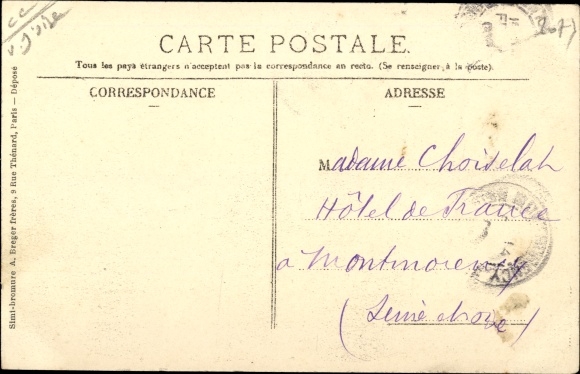 CARTE POSTALE.
Tous les pays étrangers n'acceptent pas la correspondance au recto. (Se renseigner à la poste).
CORRESPONDANCE
ADRESSE
Madame Choiselat
Hôtel de France
à Montmorency
(Seine et Oise)
Simi-bromure A. Breger frères, 9 Rue Thénard, Paris — Déposé